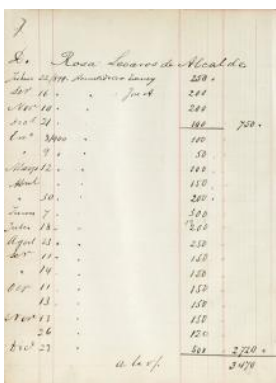 D. Rosa Lezaros de Alcalde
Julio 22/899. 250.
Set 16 " 200
Nov 10 " 200
Dic 21 " 100 750.
En 3/900 " 100
" 9 " 50
Mayo 12 " 100.
Abril 150.
" 30. 200.
Junio 7. 500
Julio 18 200
Agot 25 250
Set 11 150
" 14 150
Oct 11 150
13. 150
Nov 13 150
26 120
Dic 23 500 2720.
a la v/. 3470